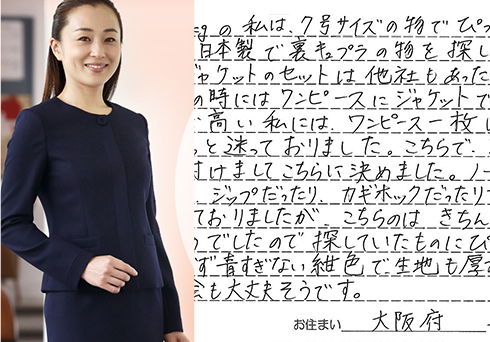 の 私は、7号サイズの物でぴっ
日本製で裏キュプラの物を探し
ジャケットのセットは他社もあった
の時にはワンピースにジャケットで
高い私には、ワンピース一枚は
と迷っておりました。こちらで、
付けましてこちらに決めました。ノー
、ジップだったり、カギホックだったり
ておりましたが、こちらのは きちん
でしたので探していたものにぴ
ず青すぎない紺色で、生地も厚
会も大丈夫そうです。
お住まい 大阪府